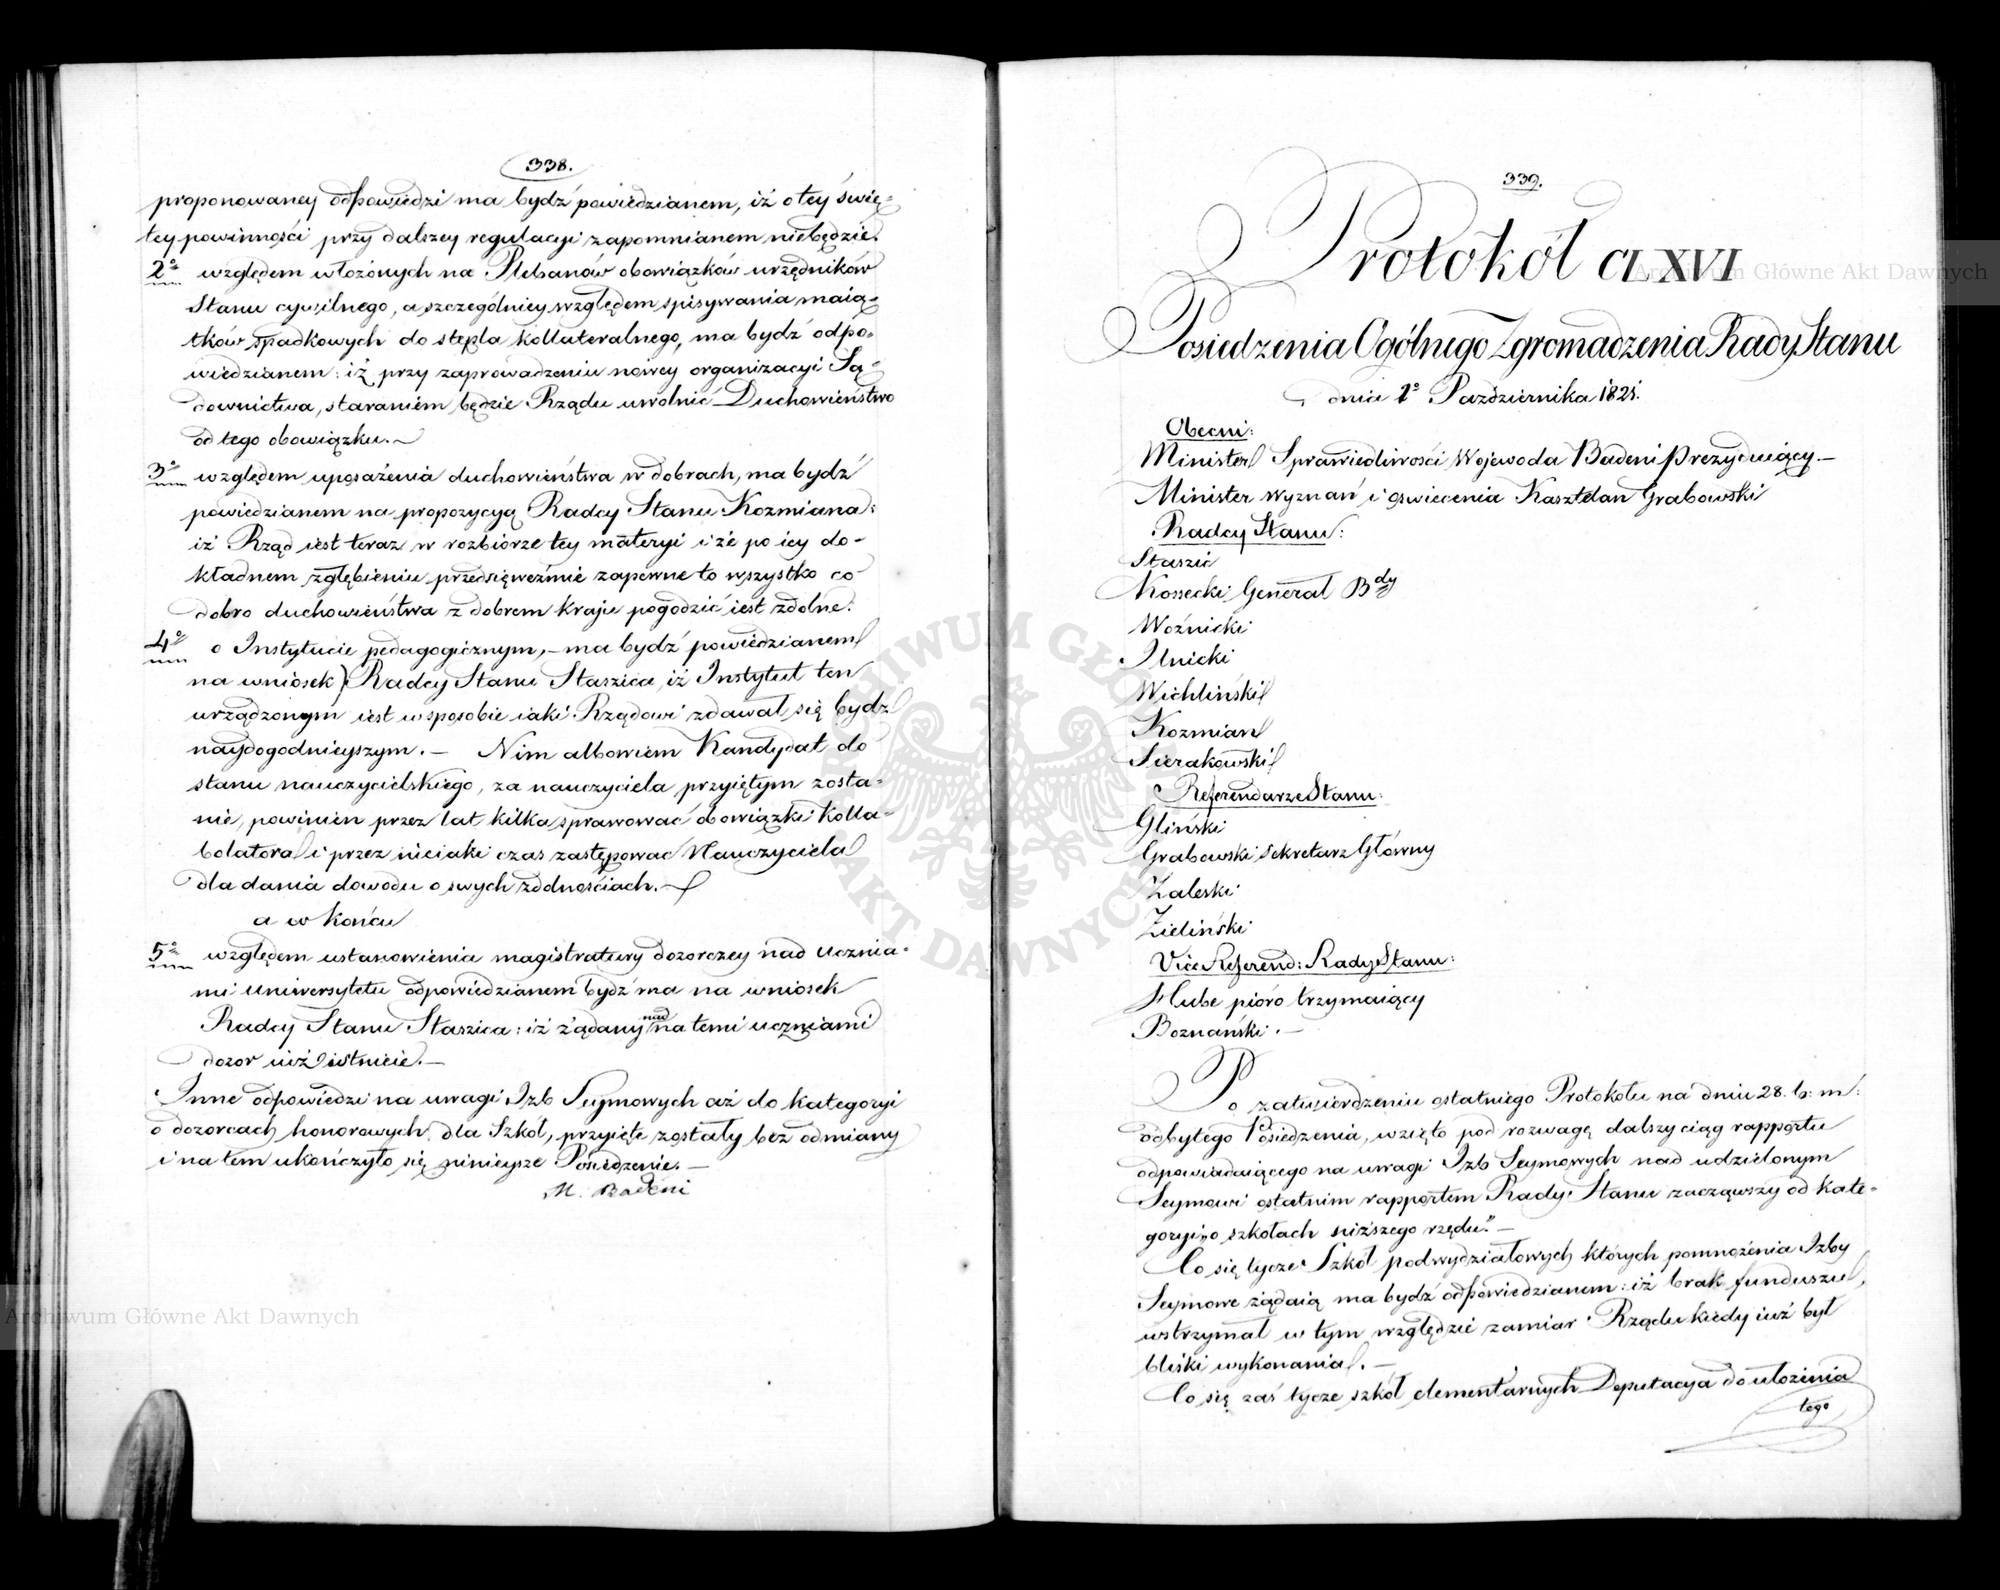 338.
proponowaney odpowiedzi ma bydź powiedzianem, iż o tey świę-
tey powinności przy dalszey regulacyi zapomnianem niebędzie.
2o względem włożonych na Plebanów obowiązków urzędników
Stanu cywilnego, a szczególniey względem spisywania maią-
tków spadkowych do stępla kollateralnego, ma bydź odpo-
wiedzianem: iż przy zaprowadzeniu nowey organizacyi Są-
downictwa, staraniem będzie Rządu uwolnić Duchowieństwo
od tego obowiązku.
3o względem uposażenia duchowieństwa w dobrach, ma bydź
powiedzianem na propozycyą Radcy Stanu Kozmiana:
iż Rząd iest teraz w rozbiorze tey materyi i że po iey do-
kładnem zgłębieniu przedsięweźmie zapewne to wszystko co
dobro duchowieństwa z dobrem kraju pogodzić iest zdolne.
4o o Instytucie pedagogicznym, – ma bydź powiedzianem
na wniosek Radcy Stanu Staszica, iż Instytut ten
urządzonym iest w sposobie iaki Rządowi zdawał się bydz
naydogodnieyszym. – Nim albowiem Kandydat do
stanu nauczycielskiego, za nauczyciela przyiętym zosta-
nie, powinien przez lat kilka sprawować obowiązki Kolla-
bolatora i przez nieiaki czas zastępować Nauczyciela
dla dania dowodu o swych zdolnościach. –
a w końcu
5o względem ustanowienia magistratury dozorczey nad Ucznia-
mi Uniwersytetu odpowiedzianem bydź ma na wniosek
Radcy Stanu Staszica: iż żądany nad na temi uczniami
dozor iuż istnieie. –
Inne odpowiedzi na uwagi Izb Seymowych aż do kategoryi
o dozorcach honorowych dla Szkół, przyięte zostały bez odmiany
i na tem ukończyło się ninieysze Posiedzenie. –
M. Badeni
339.
Protokół CLXVI
Posiedzenia Ogólnego Zgromadzenia Rady Stanu
dnia 1o Października 1821.
Obecni:
Minister Sprawiedliwości Wojewoda Badeni Prezyduiący –
Minister wyznań i oświecenia Kasztelan Grabowski
Radcy Stanu:
Staszic
Kossecki Generał Bdy
Woźnicki
Ilnicki
Wichliński
Kozmian
Sierakowski
Referendarze Stanu:
Gliński
Grabowski Sekretarz Główny
Zaleski
Zieliński
Vice Referend: Rady Stanu:
Hube pióro trzymaiący
Boznański. –
Po zatwierdzeniu ostatniego Protokołu na dniu 28. b: m:
odbytego Posiedzenia, wzięto pod rozwagę dalszy ciąg rapportu
odpowiadaiącego na uwagi Izb Seymowych nad udzielonym
Seymowi ostatnim rapportem Rady Stanu zacząwszy od kate-
goryi „o szkołach niższego rzędu.” –
Co się tycze Szkół podwydziałowych których pomnożenia Izby
Seymowe żądaią ma bydź odpowiedzianem: iż brak funduszu,
wstrzymał w tym względzie zamiar Rządu kiedy iuż był
bliski wykonania. –
Co się zaś tycze szkół elementarnych Deputacya do ułożenia
tego
Archiwum Główne Akt Dawnych
Archiwum Główne Akt Dawnych
ARCHIWUM GŁÓWNE AKT DAWNYCH